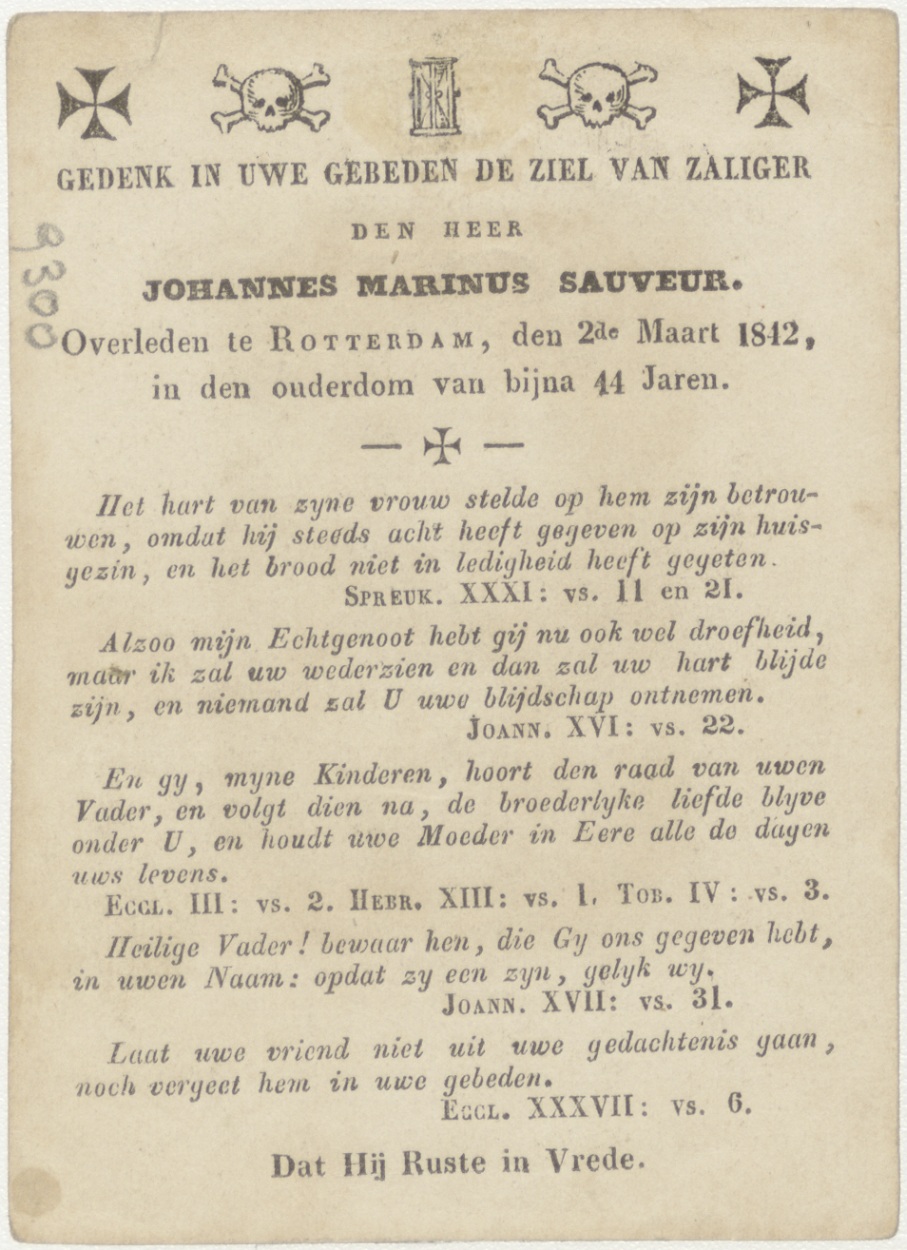 GEDENK IN UWE GEBEDEN DE ZIEL VAN ZALIGER
DEN HEER
JOHANNES MARINUS SAUVEUR.
Overleden te ROTTERDAM, den 2de Maart 1842,
in den ouderdom van bijna 44 Jaren.
Het hart van zyne vrouw stelde op hem zijn betrou-
wen, omdat hij steeds acht heeft gegeven op zijn huis-
gezin, en het brood niet in ledigheid heeft gegeten.
SPREUK. XXXI: vs. 11 en 21.
Alzoo mijn Echtgenoot hebt gij nu ook wel droefheid,
maar ik zal uw wederzien en dan zal uw hart blijde
zijn, en niemand zal U uwe blijdschap ontnemen.
JOANN. XVI: vs. 22.
En gy, myne Kinderen, hoort den raad van uwen
Vader, en volgt dien na, de broederlyke liefde blyve
onder U, en houdt uwe Moeder in Eere alle de dagen
uws levens.
ECCL. III: vs. 2. HEBR. XIII: vs. 1. TOB. IV: vs. 3.
Heilige Vader! bewaar hen, die Gy ons gegeven hebt,
in uwen Naam: opdat zy een zyn, gelyk wy.
JOANN. XVII: vs. 31.
Laat uwe vriend niet uit uwe gedachtenis gaan,
noch vergeet hem in uwe gebeden.
ECCL. XXXVII: vs. 6.
Dat Hij Ruste in Vrede.
9300